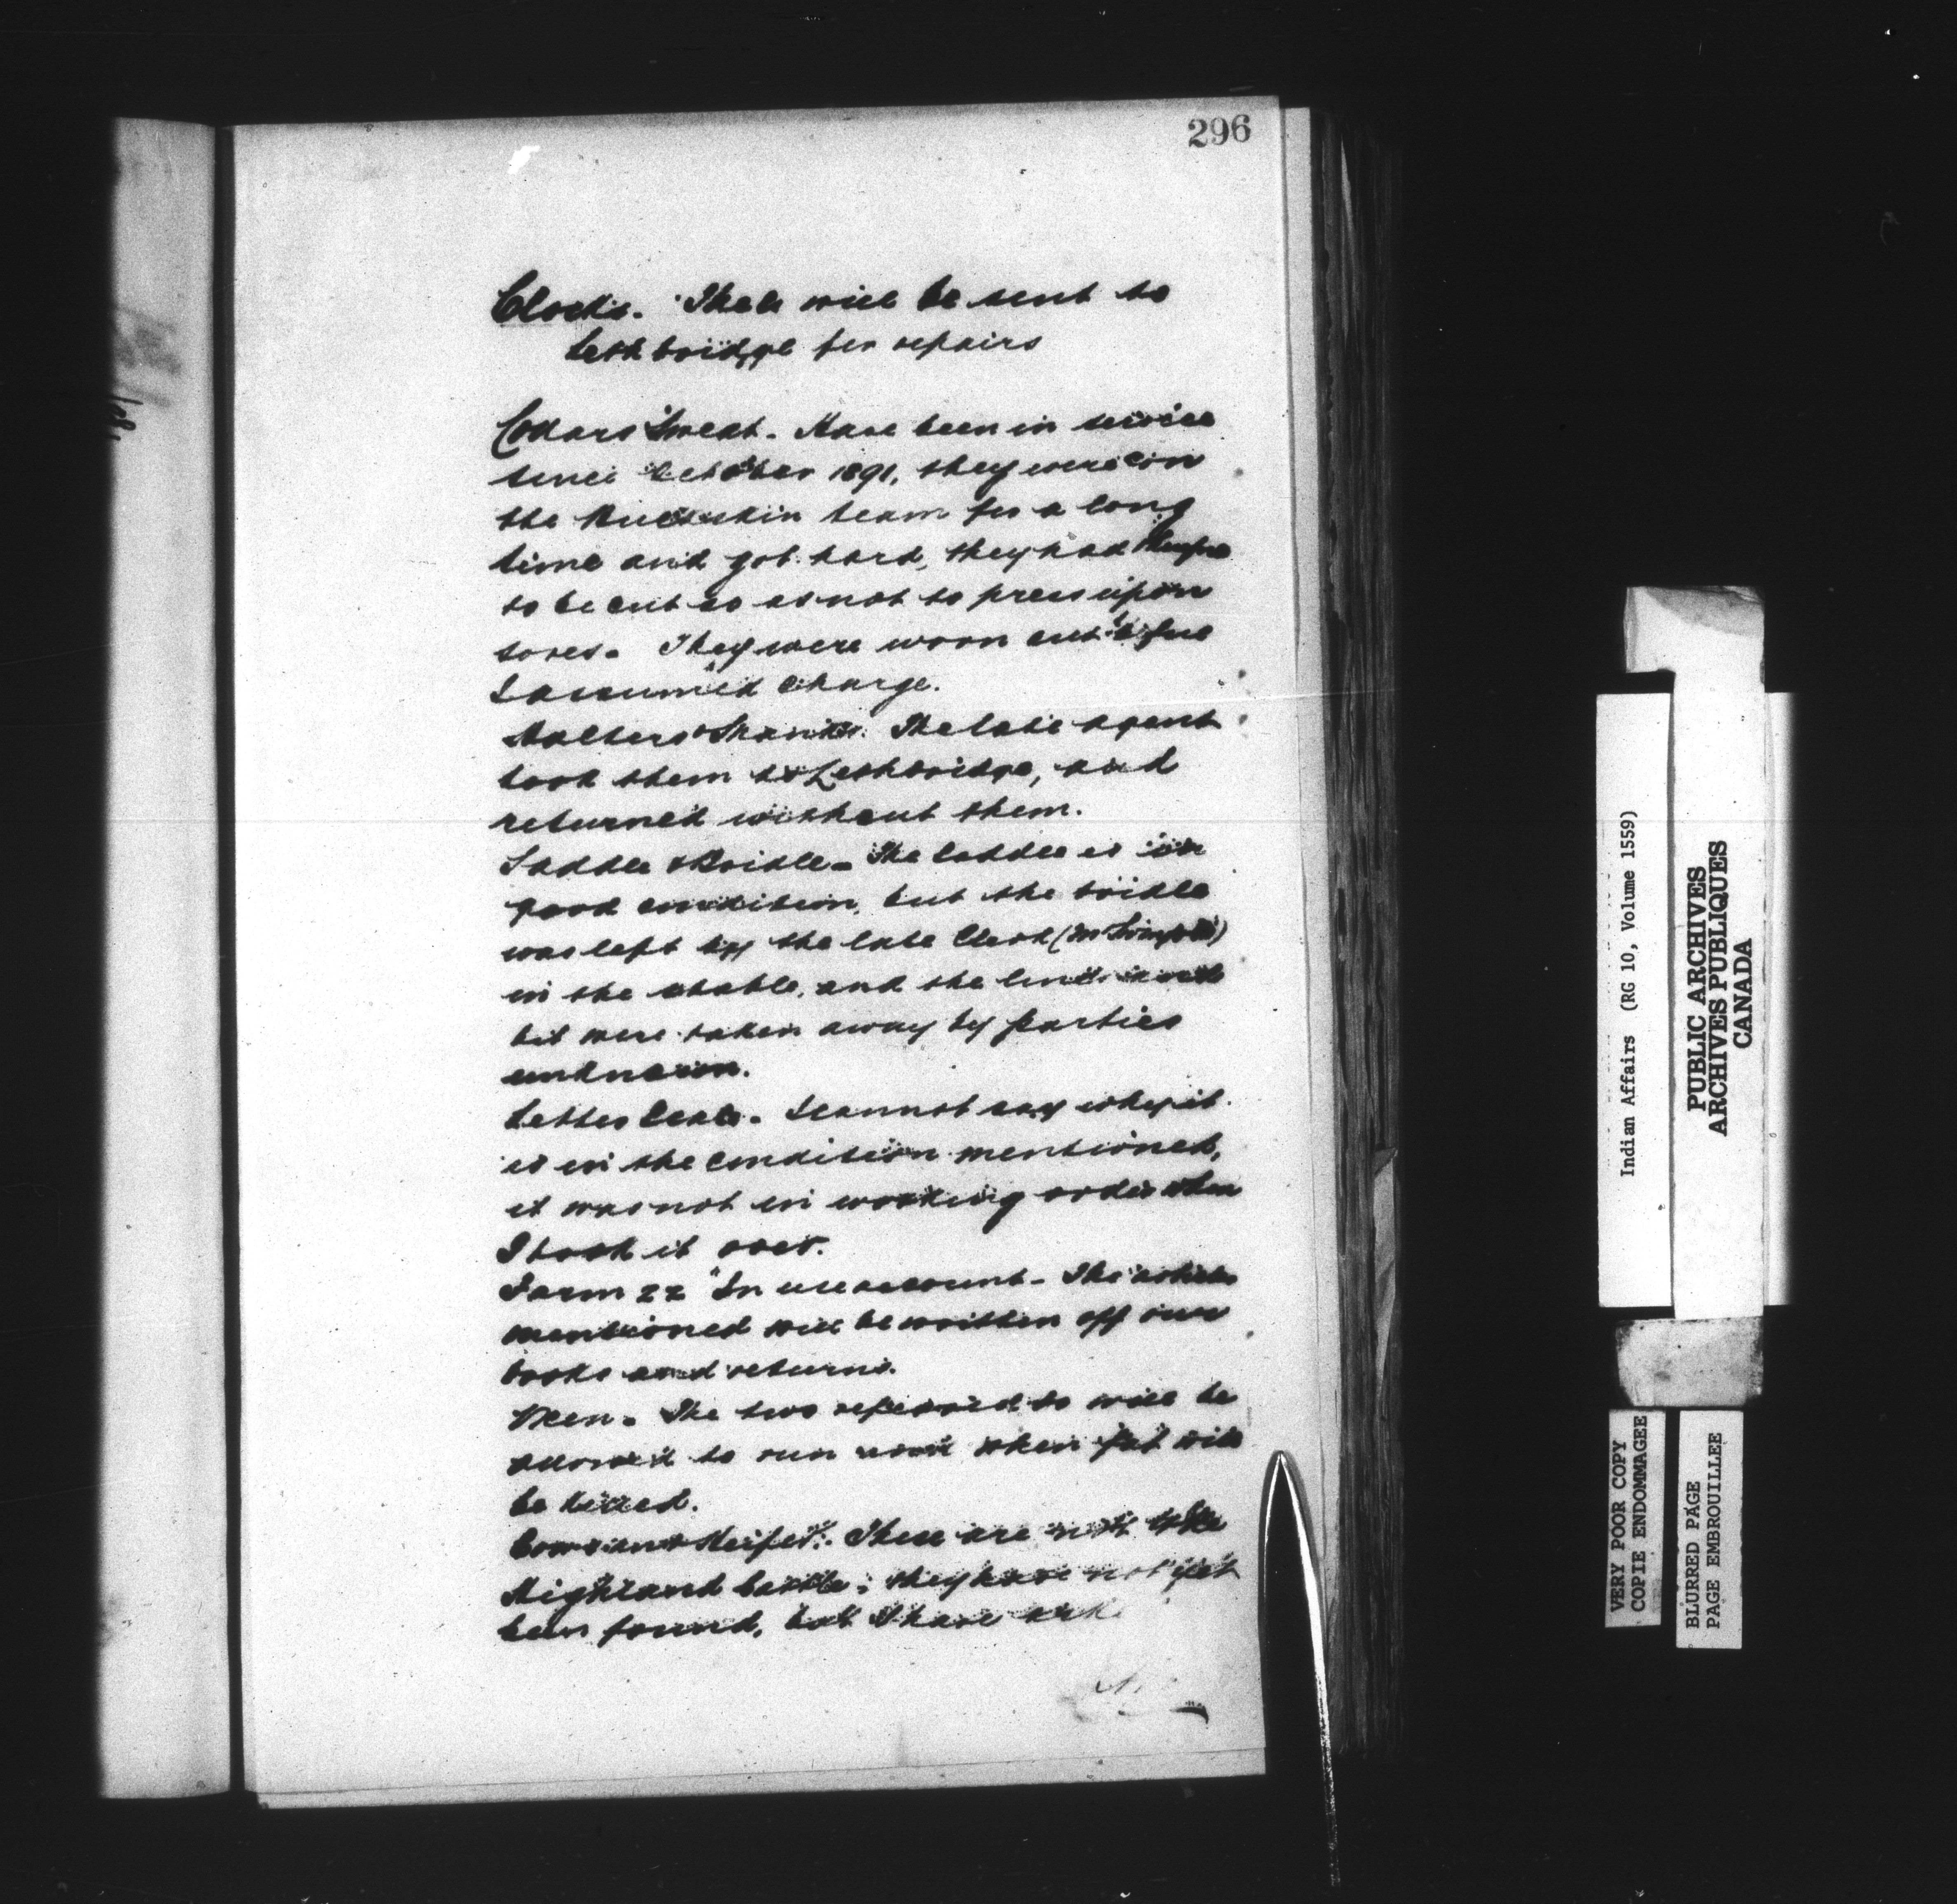 296
Clocks. These will be sent to
Lethbridge for repairs
Collars Sweat. Have been in service
since October 1891, they were on
the Buckskin team for a long
time and got hard, they had therefore
to be cut so as not to press upon
sores. They were worn out before
I assumed charge.
Halters & Shanks. The late agent
took them to Lethbridge, and
returned without them.
Saddle & Bridle. The saddle is in
good condition, but the bridle
was left by the late Clerk
in the stable, and the lines and
bit were taken away by parties
unknown.
Letter Scale. I cannot say why it
is in the condition mentioned,
it was not in working order when
I took it over.
Farm 22 "In use account. The articles
mentioned will be written off our
books and returns.
Oxen. The two referred to will be
allowed to run and when fat will
be killed.
Cows and Heifer. These are not of the
Highland Cattle; they have not yet
been found, but I have
Indian Affairs (RG 10, Volume 1559)
PUBLIC ARCHIVES
ARCHIVES PUBLIQUES
CANADA
VERY POOR COPY
COPIE ENDOMMAGEE
BLURRED PAGE
PAGE EMBROUILLEE